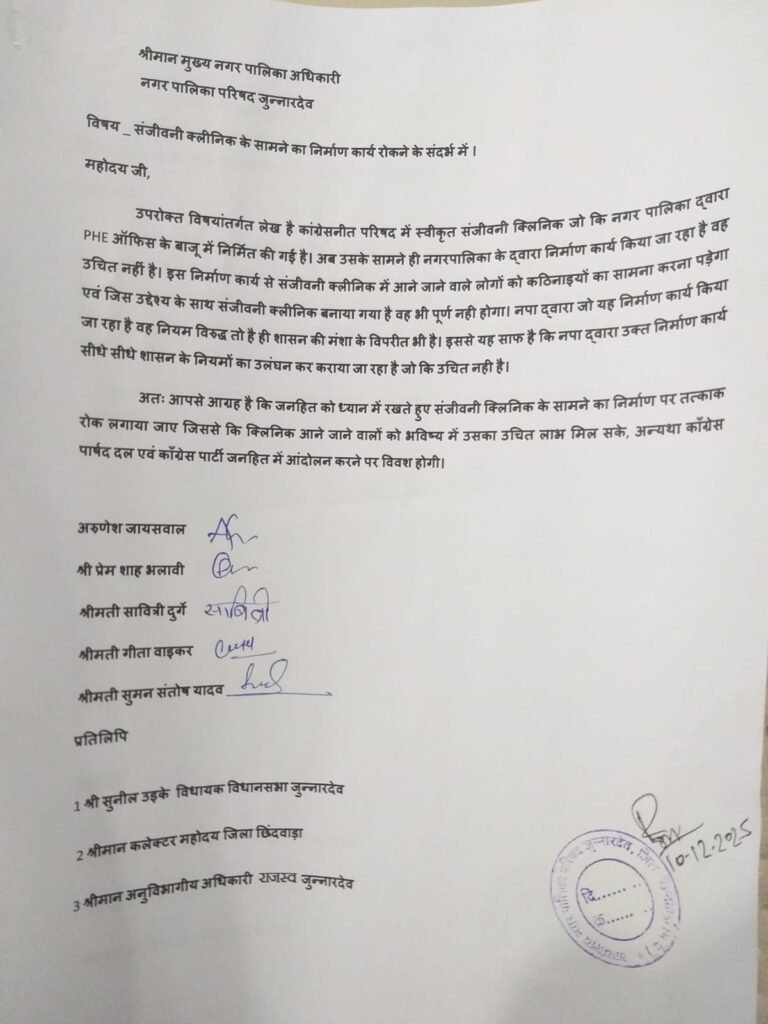 श्रीमान मुख्य नगर पालिका अधिकारी
नगर पालिका परिषद जुन्नारदेव
विषय _ संजीवनी क्लीनिक के सामने का निर्माण कार्य रोकने के संदर्भ में ।
महोदय जी,
उपरोक्त विषयांतर्गत लेख है कांग्रेसनीत परिषद में स्वीकृत संजीवनी क्लिनिक जो कि नगर पालिका द्वारा
PHE ऑफिस के बाजू में निर्मित की गई है। अब उसके सामने ही नगरपालिका के द्वारा निर्माण कार्य किया जा रहा है वह
उचित नहीं है। इस निर्माण कार्य से संजीवनी क्लीनिक में आने जाने वाले लोगों को कठिनाइयों का सामना करना पड़ेगा
एवं जिस उद्देश्य के साथ संजीवनी क्लीनिक बनाया गया है वह भी पूर्ण नही होगा। नपा द्वारा जो यह निर्माण कार्य किया
जा रहा है वह नियम विरुद्ध तो है ही शासन की मंशा के विपरीत भी है। इससे यह साफ है कि नपा द्वारा उक्त निर्माण कार्य
सीधे सीधे शासन के नियमों का उलंघन कर कराया जा रहा है जो कि उचित नही है।
अतः आपसे आग्रह है कि जनहित को ध्यान में रखते हुए संजीवनी क्लिनिक के सामने का निर्माण पर तत्काक
रोक लगाया जाए जिससे कि क्लिनिक आने जाने वालों को भविष्य में उसका उचित लाभ मिल सके, अन्यथा काँग्रेस
पार्षद दल एवं काँग्रेस पार्टी जनहित में आंदोलन करने पर विवश होगी।
अरुणेश जायसवाल
श्री प्रेम शाह भलावी
श्रीमती सावित्री दुर्गे सावित्री
श्रीमती गीता वाइकर
श्रीमती सुमन संतोष यादव
प्रतिलिपि
1 श्री सुनील उइके विधायक विधानसभा जुन्नारदेव
2 श्रीमान कलेक्टर महोदय जिला छिंदवाड़ा
3 श्रीमान अनुविभागीय अधिकारी राजस्व जुन्नारदेव
10-12-2025
कार्यालय नगर पालिका परिषद जुन्नारदेव, जिला
दि......
क्र......